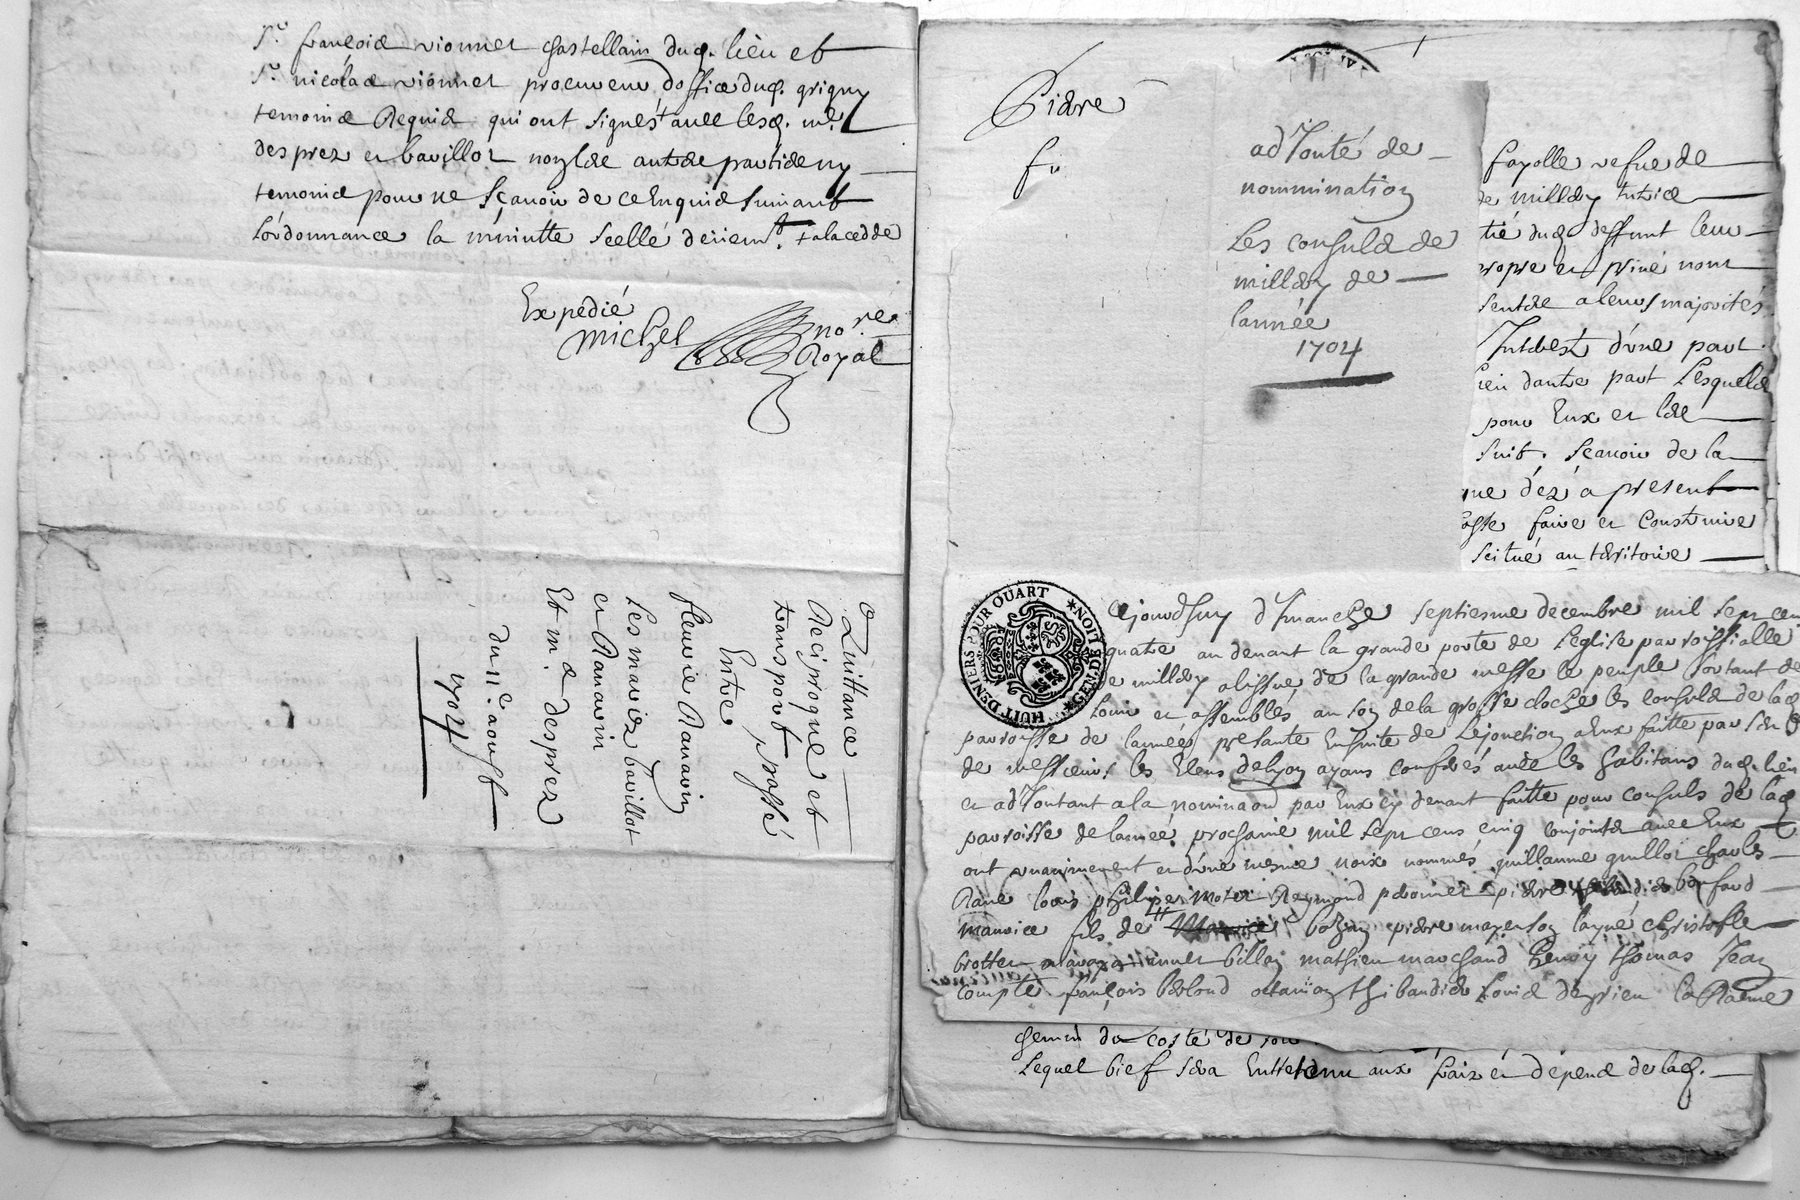 Sr. françois vionnet chastellain dud. lieu et
Sr. nicolas vionnet procureur doffice dud. grigny
temoins Requis qui ont signés avec lesd. me.
desprez et bavillot non lesde autres parties ny
temoins pour ne sçavoir de ce Enquis suivant
Lordonnance la minutte scellé
Expedié
Michel nore.
Royal
Quittance
Reciproque et
transport passé
Entre
fleurie Ranavin
Les mariez bavillot
et Ranavin
Et me. desprez
du 11e aoust
1704
Pierre
fu
adJouté de
nommination
Les consuls de
millery de
lannée
1704
fayolle vefue de
de millery tutrice
dud deffunt leur
propre et privé nom
a leurs majorités
Interest d'une part
dautre part Lesquels
pour Eux et les
suit. sçavoir de la
dez a present
faire et Construire
scitué au territoire
HUIT DENIERS POUR QUART * GEN DE LION *
Cejourdhuy dImanche septiesme decembre mil sept cens
quatre au devant la grande porte de Leglise parroissialle
de millery a lissue de la grande messe le peuple sortant de
Louir et assemblés au son de la grosse cloche les consuls de lad
parroisse de lannée presante Ensuite de LeJonction a Eux faitte par
de messieurs les Eleus de lyon ayans conferés avec les habitans dud. lieu
et adJoutant a la nominaon par Eux cy devant faitte pour consuls de lad
parroisse de lannée prochaine mil sept cens cinq conjointe avec Eux
ont unanimement et d'une mesme voix nommés guillaume guillot charles
Rane louis philipes motet Reymond peronnet pierre
maurice fils de bozan pierre mayenson layné christofle
brottet billay mathieu marchand henry thomas Jean
compte françois berloud thibaudier Louis degrieu
chemin du costé de son
Lequel bief sera Enttetenu aux fraiz et depens de lad.